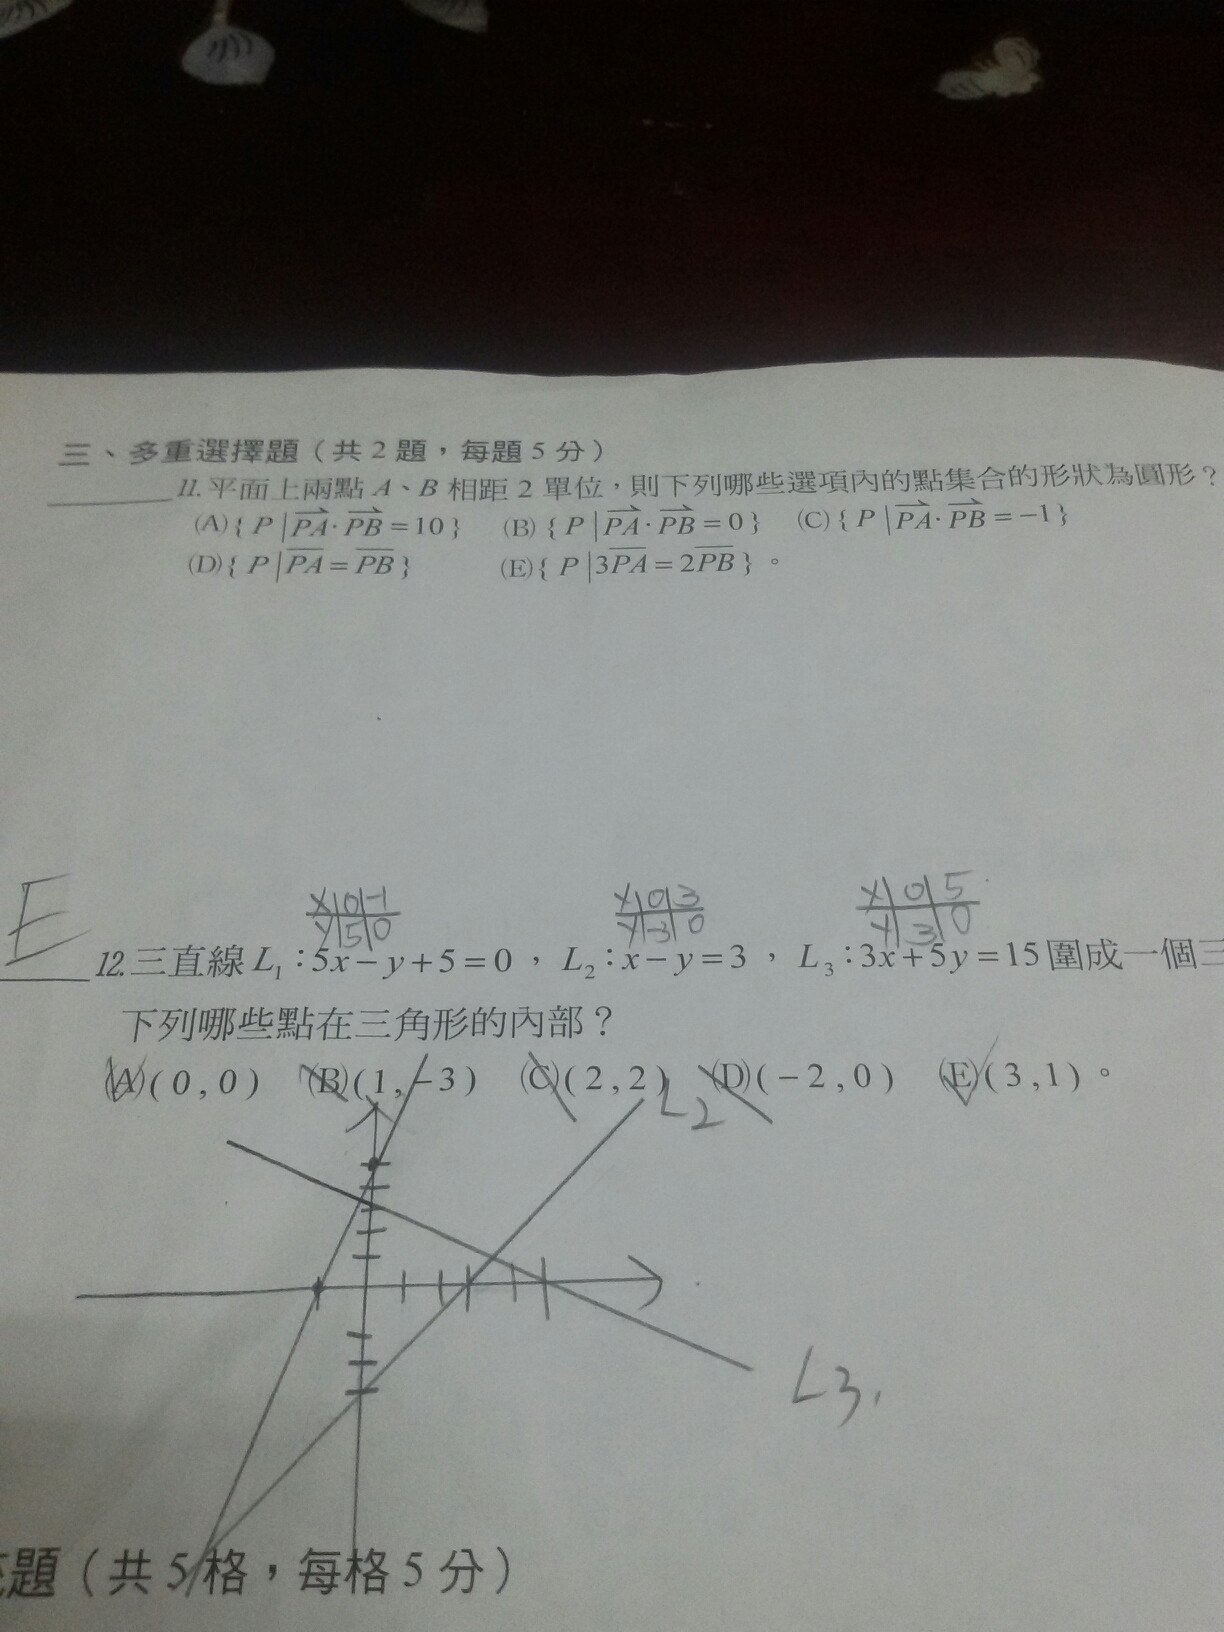 三、多重選擇題（共2題，每題5分）
11.平面上兩點A、B相距2單位，則下列哪些選項內的點集合的形狀為圓形？
(A){P|PA·PB=10} (B){P|PA·PB=0} (C){P|PA·PB=-1}
(D){P|PA=PB} (E){P|3PA=2PB}。
E
x 0 -1 x 0 3 x 0 5
y 5 0 y -3 0 y 3 0
12.三直線L₁：5x-y+5=0，L₂：x-y=3，L₃：3x+5y=15圍成一個三
下列哪些點在三角形的內部？
(A)(0,0) (B)(1,-3) (C)(2,2) (D)(-2,0) (E)(3,1)。
L2
L3
題（共5格，每格5分）